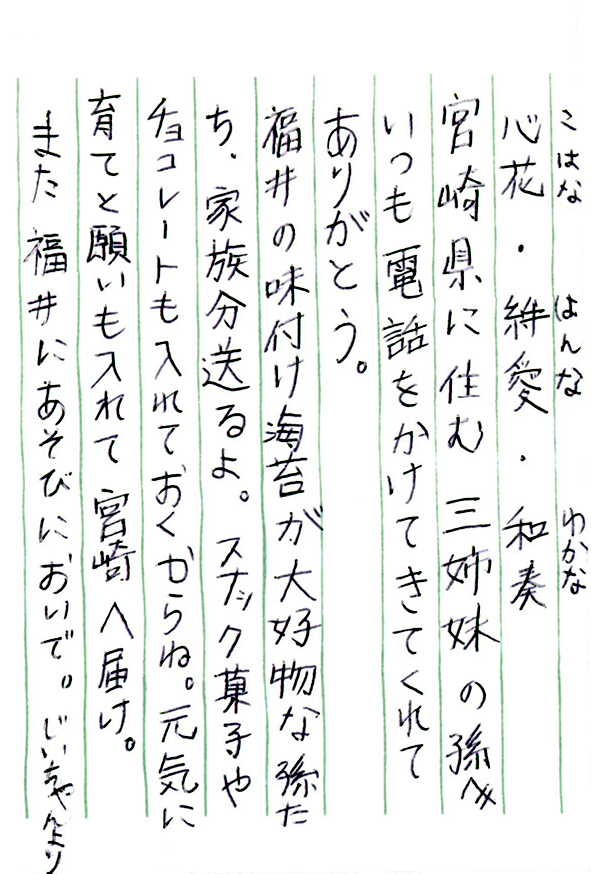 こはな はんな わかな
心花・絆愛・和奏
宮崎県に住む三姉妹の孫へ
いつも電話をかけてきてくれて
ありがとう。
福井の味付け海苔が大好物な孫た
ち、家族分送るよ。スナック菓子や
チョコレートも入れておくからね。元気に
育てと願いも入れて宮崎へ届け。
また福井にあそびにおいで。じいちゃんより